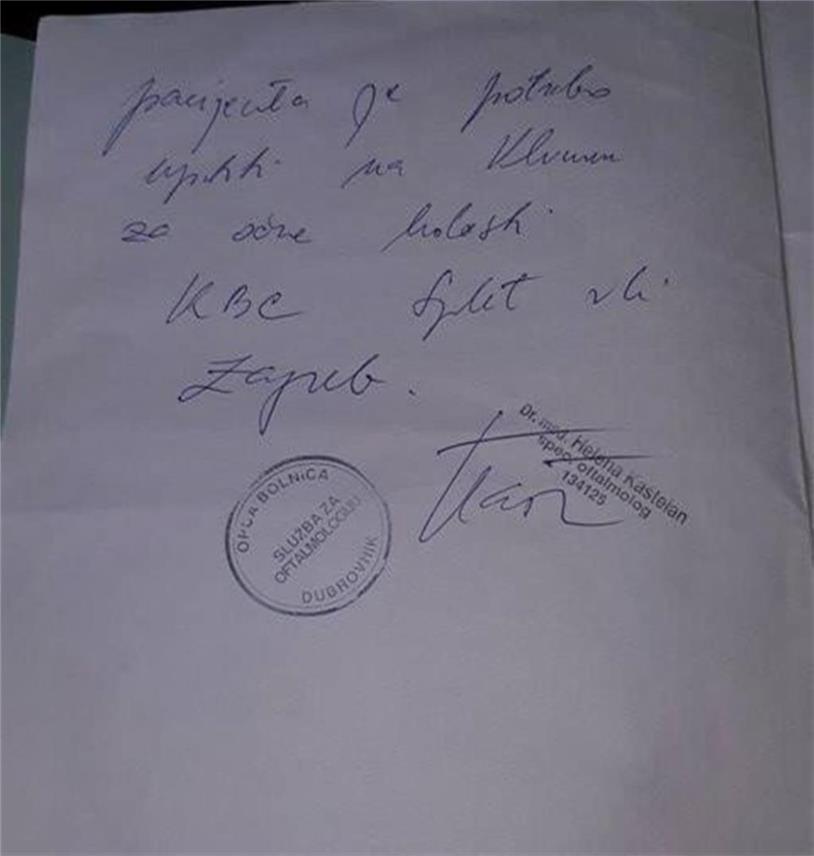 pacijenta je potrebno
uputiti na Kliniku
za očne bolesti
KBC Split ili
Zagreb.
Dr. med. Helena Kastelan
spec. oftalmolog
134125
OPĆA BOLNICA
SLUŽBA ZA
OFTALMOLOGIJU
DUBROVNIK